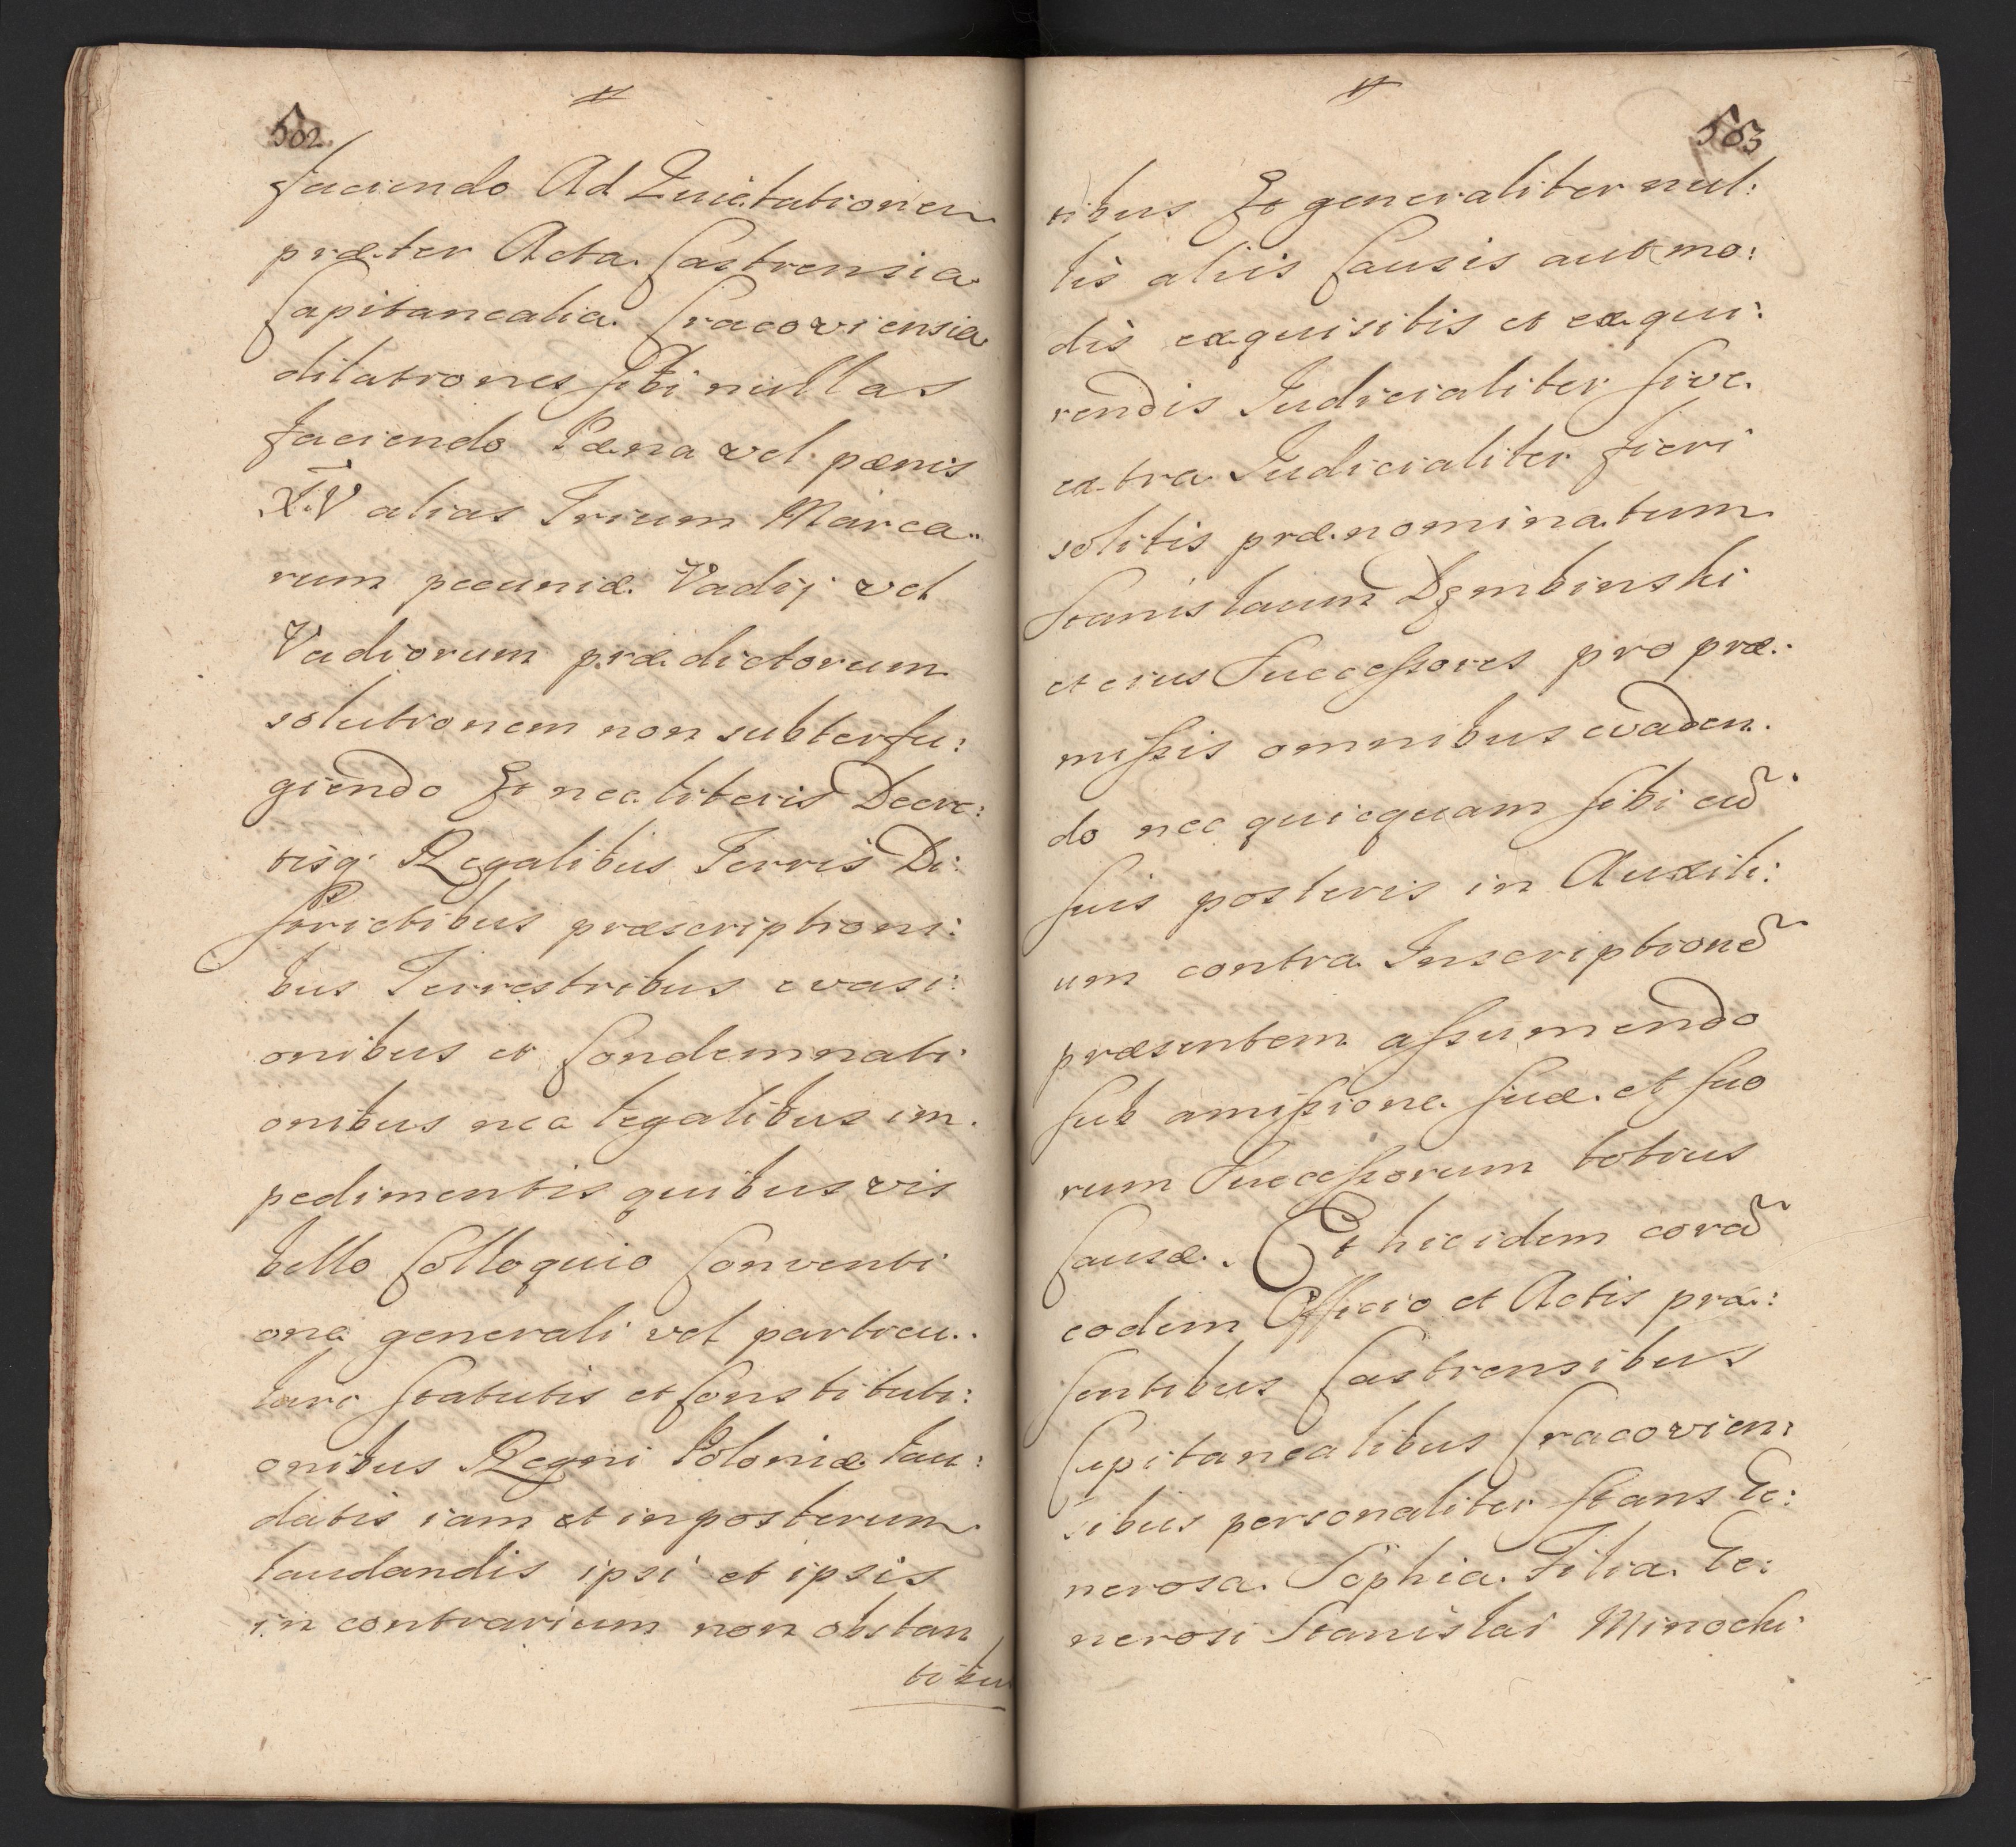 502
faciendo Ad Quietationem
præter Acta Castrensia
Capitanealia Cracoviensia
dilationes sibi nullas
faciendo Pæna vel pænis
XV alias Trium Marca:
rum pecuniæ Vadij vel
Vadiorum prædictorum
solutionem non subterfu:
giendo Et nec literis Decre:
tisq. Regalibus Terris Di:
strictibus præscriptioni:
bus Terrestribus evasi:
onibus et Condemnati
onibus nec legalibus im.
pedimentis quibusvis
bello Colloquio Conventi
one generali vel particu..
lari Statutis et Constituti:
onibus Regni Poloniæ lau:
datis iam et inposterum
laudandis ipsi et ipsis
in contrarium non obstan
tibus
503
tibus Et generaliter nul:
lis aliis Causis aut mo:
dis exquisitis et exqui:
rendis Judicialiter sive
extra Judicialiter fieri
solitis prænominatum
Stanislaum Dembinski
et eius Successores pro præ:
missis omnibus evaden.
do nec quicquam sibi cũ
suis posteris in Auxili:
um contra Inscriptionẽ
præsentem assumendo
sub amissione suæ et suo
rum Successorum totius
Causæ. Et hic idem corã
eodem Officio et Actis præ:
sentibus Castrensibus
Capitanealibus Cracovien:
sibus personaliter stans Ge:
nerosa Sophia Filia Ge:
nerosi Stanislai Minocki